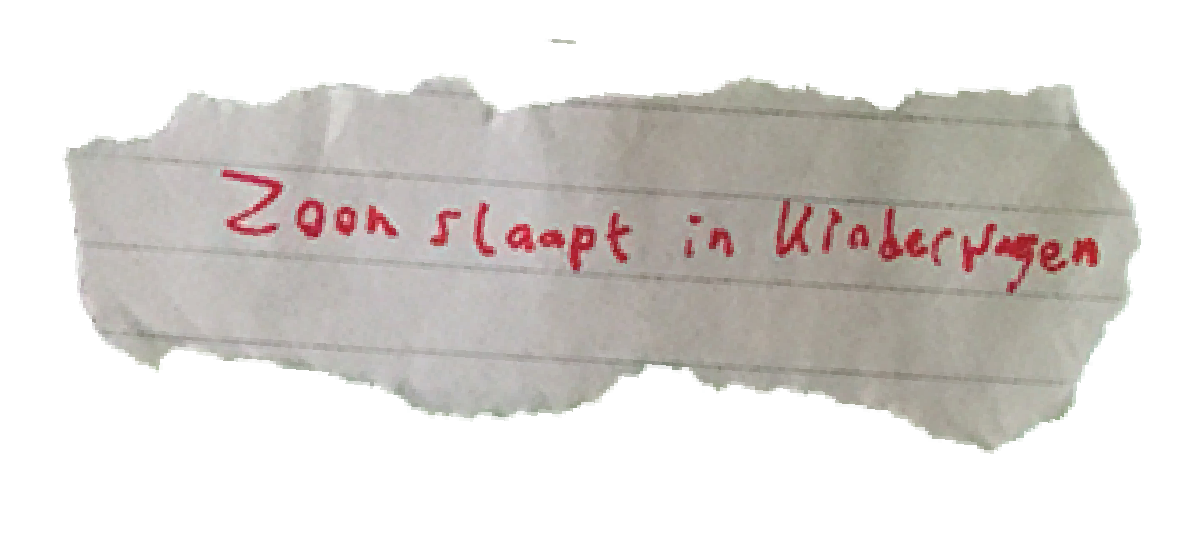 Zoon slaapt in Kinderwagen